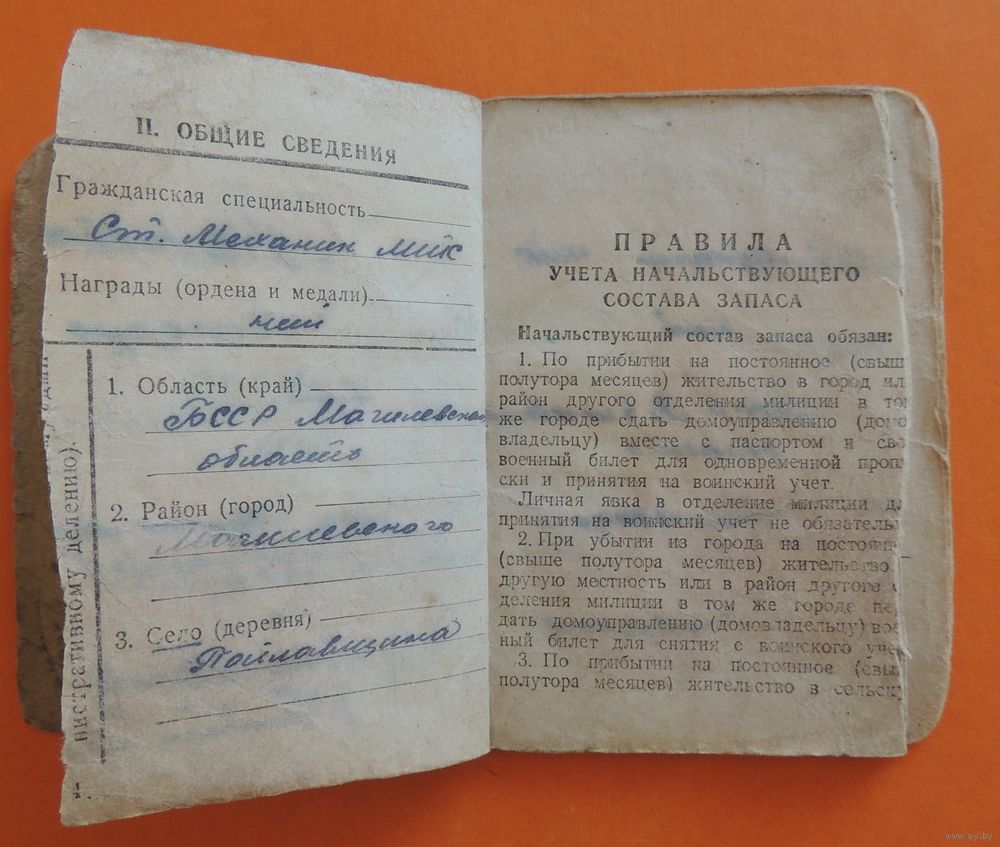 II. ОБЩИЕ СВЕДЕНИЯ
Гражданская специальность
Ст. Механик
Награды (ордена и медали)
1. Область (край)
БССР Магилевская
область
2. Район (город)
Магилевского
3. Село (деревня)
нистративному делению).
ПРАВИЛА
УЧЕТА НАЧАЛЬСТВУЮЩЕГО
СОСТАВА ЗАПАСА
Начальствующий состав запаса обязан:
1. По прибытии на постоянное (свыш
полутора месяцев) жительство в город ил
район другого отделения милиции в то
же городе сдать домоуправлению (домо
владельцу) вместе с паспортом и сво
военный билет для одновременной проп
ски и принятия на воинский учет.
Личная явка в отделение милиции дл
принятия на воинский учет не обязатель
2. При убытии из города на постоян
(свыше полутора месяцев) жительство
другую местность или в район другого
деления милиции в том же городе пе
дать домоуправлению (домовладельцу) вое
ный билет для снятия с воинского уче
3. По прибытии на постоянное (свы
полутора месяцев) жительство в сельск
www.ay.by